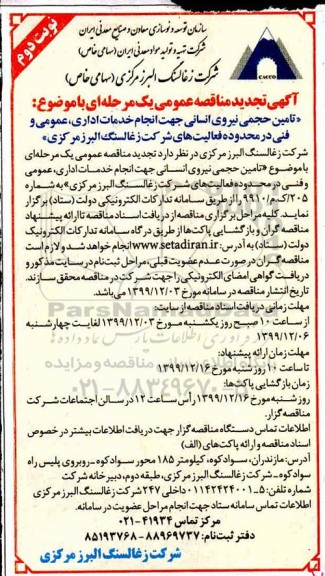 نوبت دوم
سازمان توسعه و نوسازی معادن و صنایع معدنی ایران
شرکت تهیه و تولید مواد معدنی ایران (سهامی خاص)
شرکت زغالسنگ البرز مرکزی (سهامی خاص)
CACCO
آگهی تجدید مناقصه عمومی یک مرحله‌ای با موضوع:
«تامین حجمی نیروی انسانی جهت انجام خدمات اداری، عمومی و
فنی در محدوده فعالیت‌های شرکت زغالسنگ البرز مرکزی»
شرکت زغالسنگ البرز مرکزی در نظر دارد تجدید مناقصه عمومی یک مرحله‌ای
با موضوع «تامین حجمی نیروی انسانی جهت انجام خدمات اداری، عمومی
و فنی در محدوده فعالیت‌های شرکت زغالسنگ البرز مرکزی» به شماره
۲۰۵/اک/۹۹۱۰ را از طریق سامانه تدارکات الکترونیکی دولت (ستاد) برگزار
نماید. کلیه مراحل برگزاری مناقصه از دریافت اسناد مناقصه تا ارائه پیشنهاد
مناقصه گران و بازگشایی پاکت‌ها از طریق درگاه سامانه تدارکات الکترونیک
دولت (ستاد) به آدرس: www.setadiran.ir انجام خواهد شد و لازم است
مناقصه گران در صورت عدم عضویت قبلی، مراحل ثبت نام در سایت مذکور و
دریافت گواهی امضای الکترونیکی را جهت شرکت در مناقصه محقق سازند.
تاریخ انتشار مناقصه در سامانه مورخ ۱۳۹۹/۱۲/۰۳ می‌باشد.
مهلت زمانی دریافت اسناد مناقصه از سایت:
از ساعت ۱۰ صبح روز یکشنبه مورخ ۱۳۹۹/۱۲/۰۳ لغایت چهارشنبه
۱۳۹۹/۱۲/۰۶
مهلت زمان ارائه پیشنهاد:
تا ساعت ۱۰ روز شنبه مورخ ۱۳۹۹/۱۲/۱۶
زمان بازگشایی پاکت‌ها:
روز شنبه مورخ ۱۳۹۹/۱۲/۱۶ رأس ساعت ۱۲ در سالن اجتماعات شرکت
مناقصه گزار.
اطلاعات تماس دستگاه مناقصه گزار جهت دریافت اطلاعات بیشتر در خصوص
اسناد مناقصه و ارائه پاکت‌های (الف)
آدرس: مازندران، سوادکوه، کیلومتر ۱۸۵ محور سوادکوه-روبروی پلیس راه
سوادکوه-شرکت زغالسنگ البرز مرکزی، طبقه دوم، دبیرخانه شرکت
شماره تلفن: ۵-۰۱۱۴۲۴۲۴۰۰۱ داخلی ۲۴۷ شرکت زغالسنگ البرز مرکزی
اطلاعات تماس سامانه ستاد جهت انجام مراحل عضویت در سامانه.
مرکز تماس ۴۱۹۳۴-۰۲۱
دفتر ثبت نام: ۸۸۹۶۹۷۳۷ - ۸۵۱۹۳۷۶۸
شرکت زغالسنگ البرز مرکزی